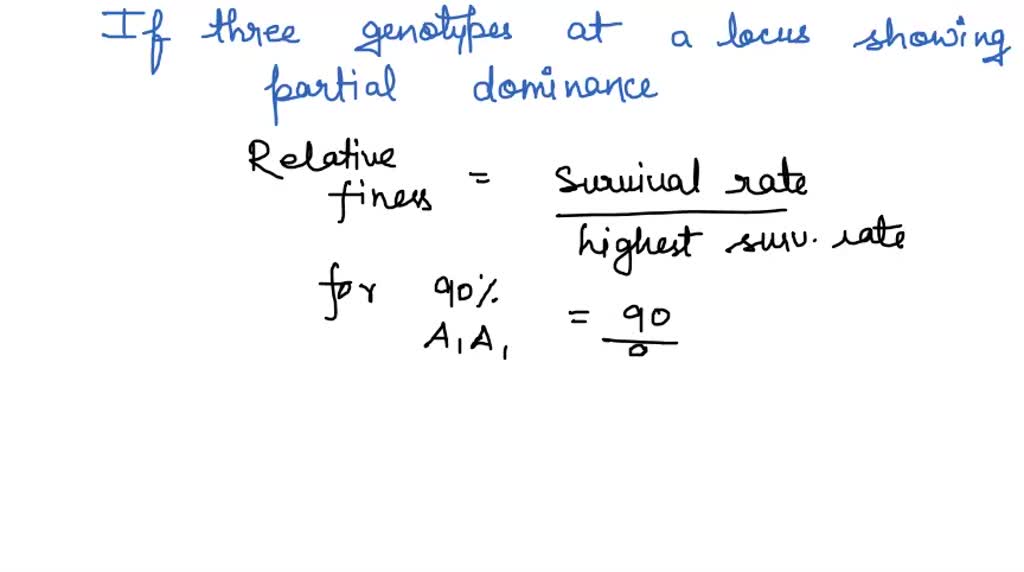 If three genotypes at a locus showing
partial dominance
Relative finess = survival rate / highest surv. rate
for 90% A₁A₁ = 90 / 0